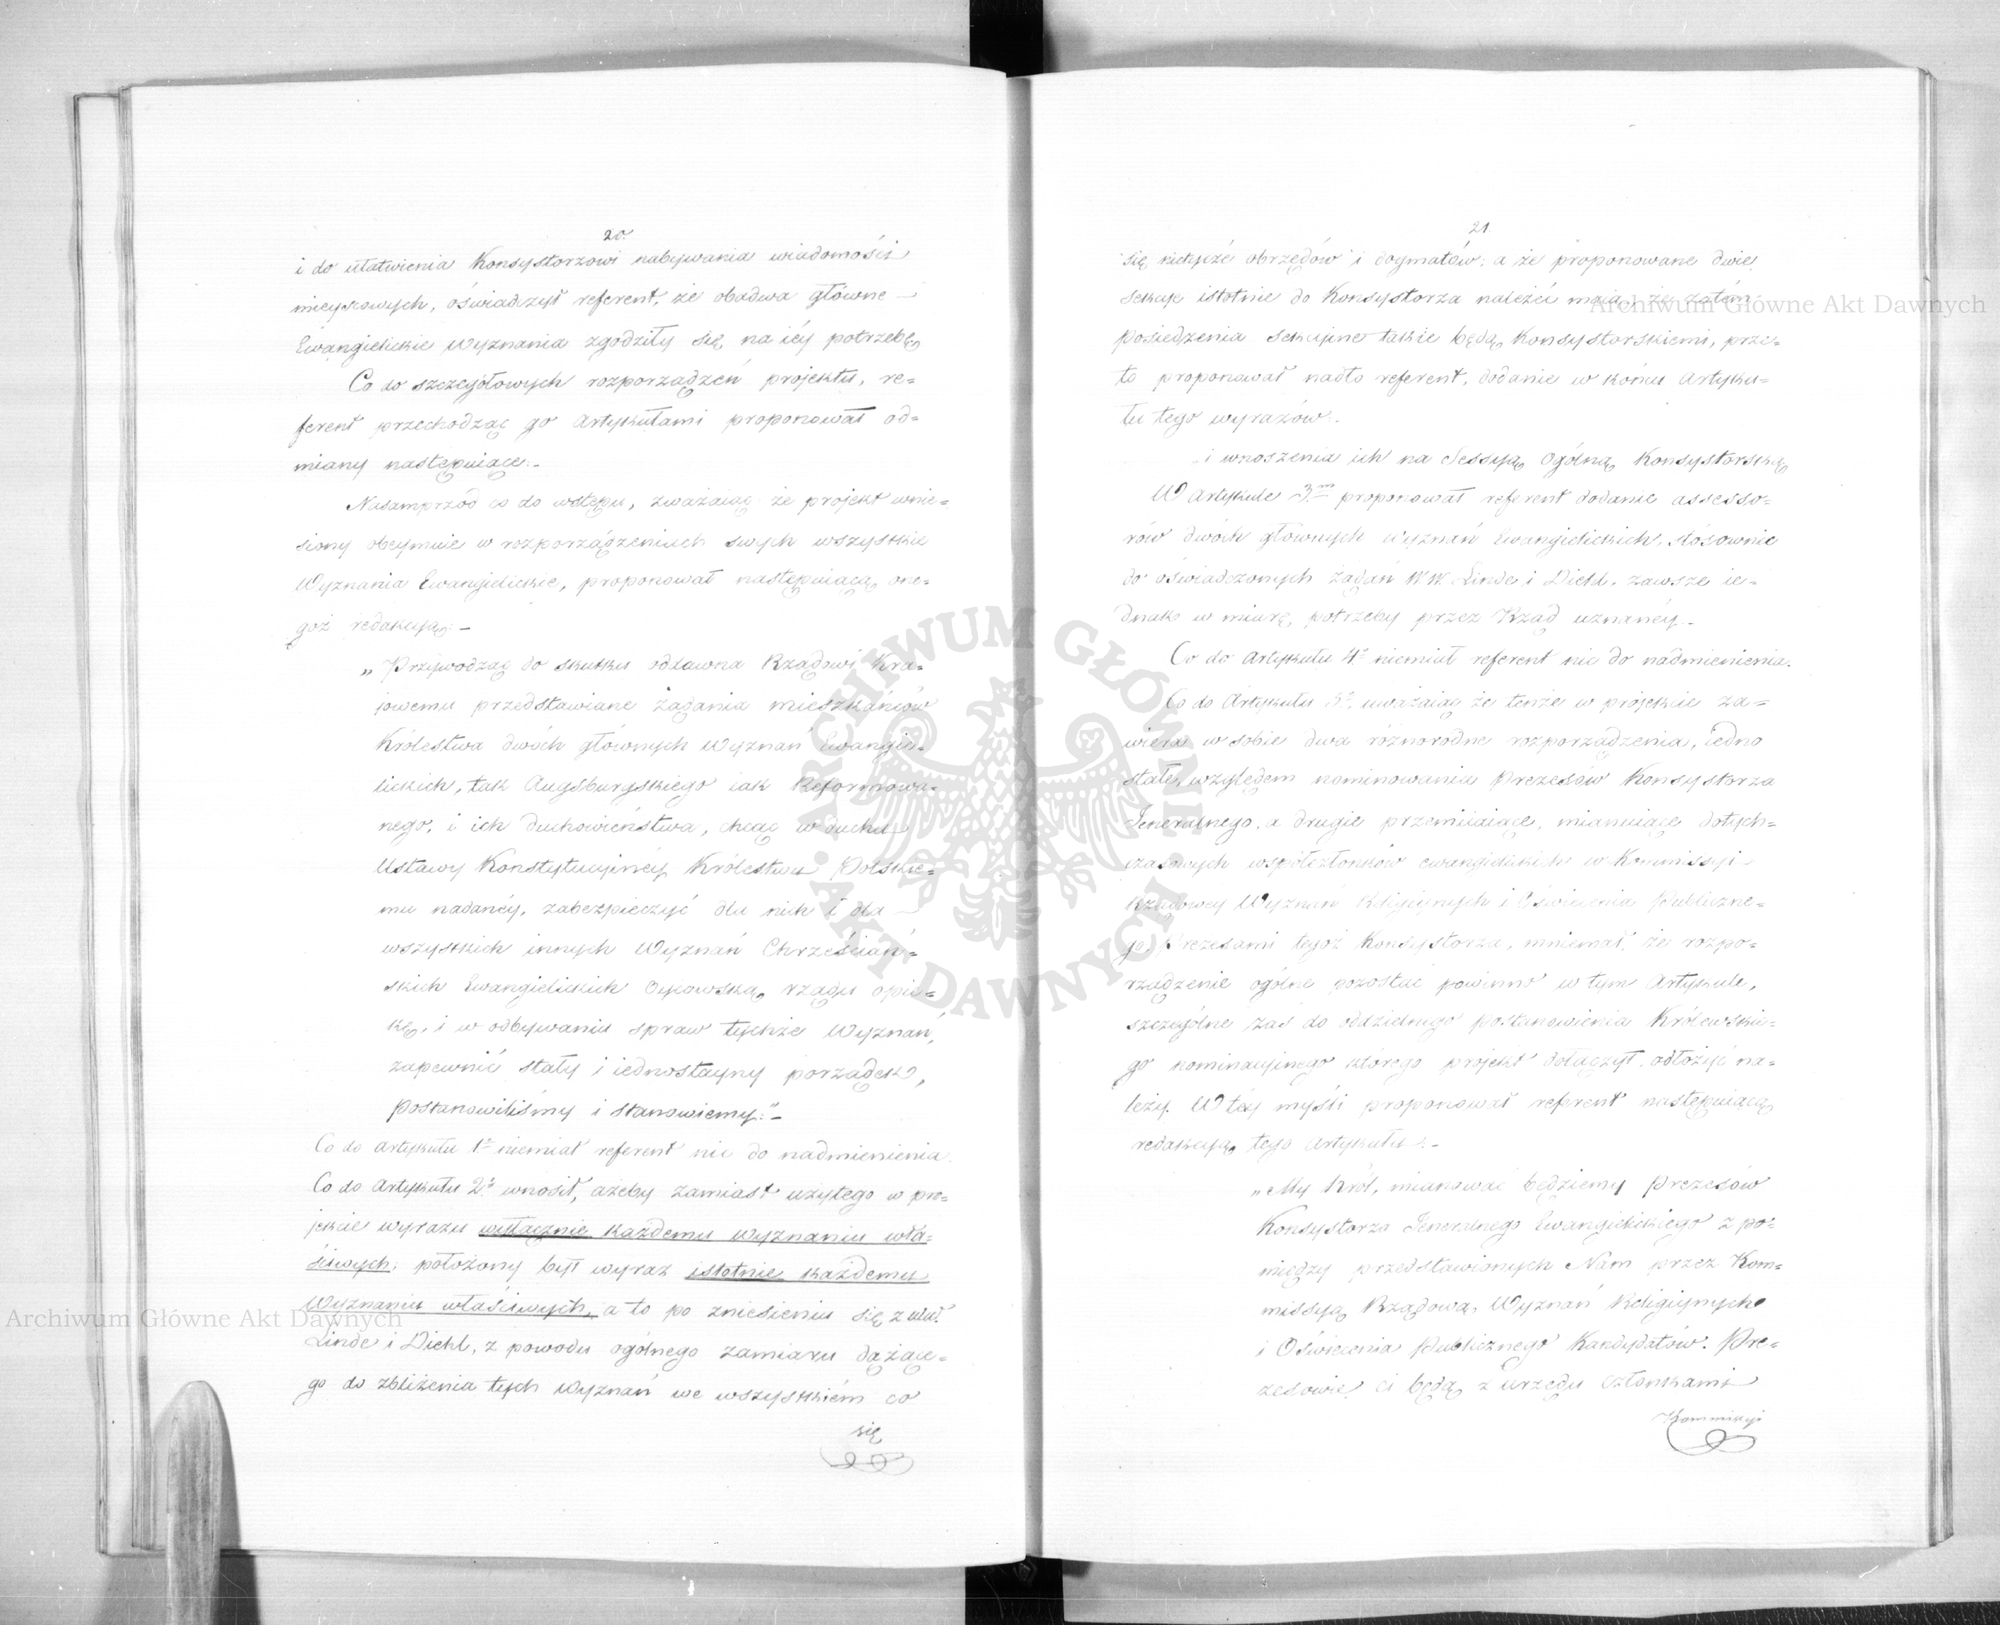 20.
i do ułatwienia Konsystorzowi nabywania wiadomości
mieyscowych, oświadczył referent, że obadwa główne
Ewangielickie Wyznania zgodziły się na iéy potrzebę.
Co do szczegółowych rozporządzeń projektu, re=
ferent przechodząc go Artykułami proponował od=
miany następuiące:
Nasamprzód co do wstępu, zważaiąc że projekt wnie=
siony obeymuie w rozporządzeniach swych wszystkie
Wyznania Ewangielickie, proponował następuiącą one=
goż redakcyą:
„Przywodząc do skutku oddawna Rządowi Kra=
jowemu przedstawiane żądania mieszkańców
Królestwa dwóch głównych Wyznań Ewangie=
lickich, tak Augsburgskiego iak Reformowa=
nego, i ich duchowieństwa, chcąc w duchu
Ustawy Konstytucyinéy Królestwu Polskie=
mu nadanéy, zabezpieczyć dla nich i dla
wszystkich innych Wyznań Chrześciań=
skich Ewangielickich Oycowską rządu opie=
kę, i w odbywaniu spraw tychże Wyznań,
zapewnić stały i iednostayny porządek,
postanowiliśmy i stanowiemy:"
Co do Artykułu 1º niemiał referent nic do nadmienienia.
Co do Artykułu 2º wnosił, ażeby zamiast użytego w pro=
jekcie wyrazu wyłącznie każdemu wyznaniu wła=
ściwych, położony był wyraz istotnie każdemu
Wyznaniu właściwych, a to po zniesieniu się z WW.
Linde i Diehl, z powodu ogólnego zamiaru dążące=
go do zbliżenia tych Wyznań we wszystkiém co
się
21
się nietycze obrzędów i dogmatów; a że proponowane dwie
sekcye istotnie do Konsystorza należéć maią, że zatém
posiedzenia sekcyine także będą Konsystorskiemi, prze=
to proponował nadto referent, dodanie w końcu Artyku=
łu tego wyrazów:
i wnoszenia ich na Sessyą Ogólną Konsystorską
W Artykule 3m proponował referent dodanie assesso=
rów dwóch głównych Wyznań Ewangielickich, stósownie
do oświadczonych żądań WW. Linde i Diehl, zawsze ie=
dnak w miarę potrzeby przez Rząd uznanéy.
Co do Artykułu 4º niemiał referent nic do nadmienienia.
Co do Artykułu 5º uważaiąc że tenże w projekcie za=
wiera w sobie dwa różnorodne rozporządzenia, iedno
stałe, względem nominowania Prezesów Konsystorza
Jeneralnego, a drugie przemiiaiące, mianuiące dotych=
czasowych współczłonków ewangielickich w Kommissyi
Rządowéy Wyznań Religiynych i Oświecenia Publiczne=
go, Prezesami tegoż Konsystorza, mniemał, że rozpo=
rządzenie ogólne pozostać powinno w tym Artykule,
szczególne zaś do oddzielnego postanowienia Królewskie=
go nominacyinego którego projekt dołączył odłożyć na=
leży. W téy myśli proponował referent następuiącą
redakcyą tego Artykułu:
„My Król, mianować będziemy Prezesów
Konsystorza Jeneralnego Ewangielickiego z po=
między przedstawionych Nam przez Kom=
missyą Rządową Wyznań Religiynych
i Oświecenia Publicznego Kandydatów. Pre=
zesowie ci będą z Urzędu członkami
Kommissyi
Archiwum Główne Akt Dawnych
Archiwum Główne Akt Dawnych
ARCHIWUM GŁÓWNE AKT DAWNYCH